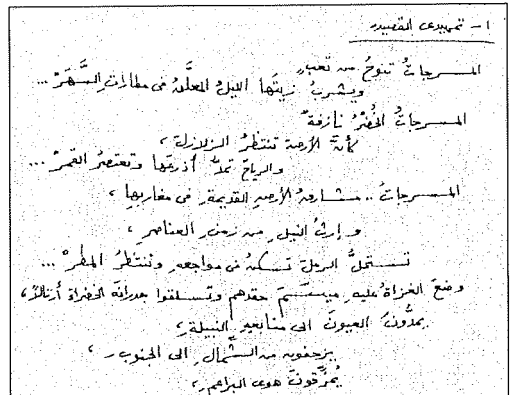 ١- تمهيدى القصيدة
المسرجاتُ تنوحُ من تعبٍ
ويشربُ زيتَها الليلُ المعلَّقُ فى مطاراتِ السَّهَرْ ...
المسرجاتُ الخُضْرُ نازفةٌ
كأنَّ الأرضَ تنتظرُ الزلازلَ ،
والرياحَ تمدُّ أذرعَها وتعتصرُ القمرْ ...
المسرجاتُ .. مشارقُ الأرضِ القديمةِ فى مغاربِها ،
وإرثُ النيلِ من زمنِ العناصرِ ،
الرملَ تسكنُ فى مواجعهِ وتنتظرُ المطرْ ...
وضعَ الغزاةُ عليهِ ميسمَ حقدهم وتسلقوا جدرانَه الخضراءَ أرتالاً ،
يمدُّونَ العيونَ الى منابعهِ النبيلةِ ،
يزحفون من الشَّمالِ الى الجنوبِ ،
يُمزِّقونَ هوى البراعمِ ،